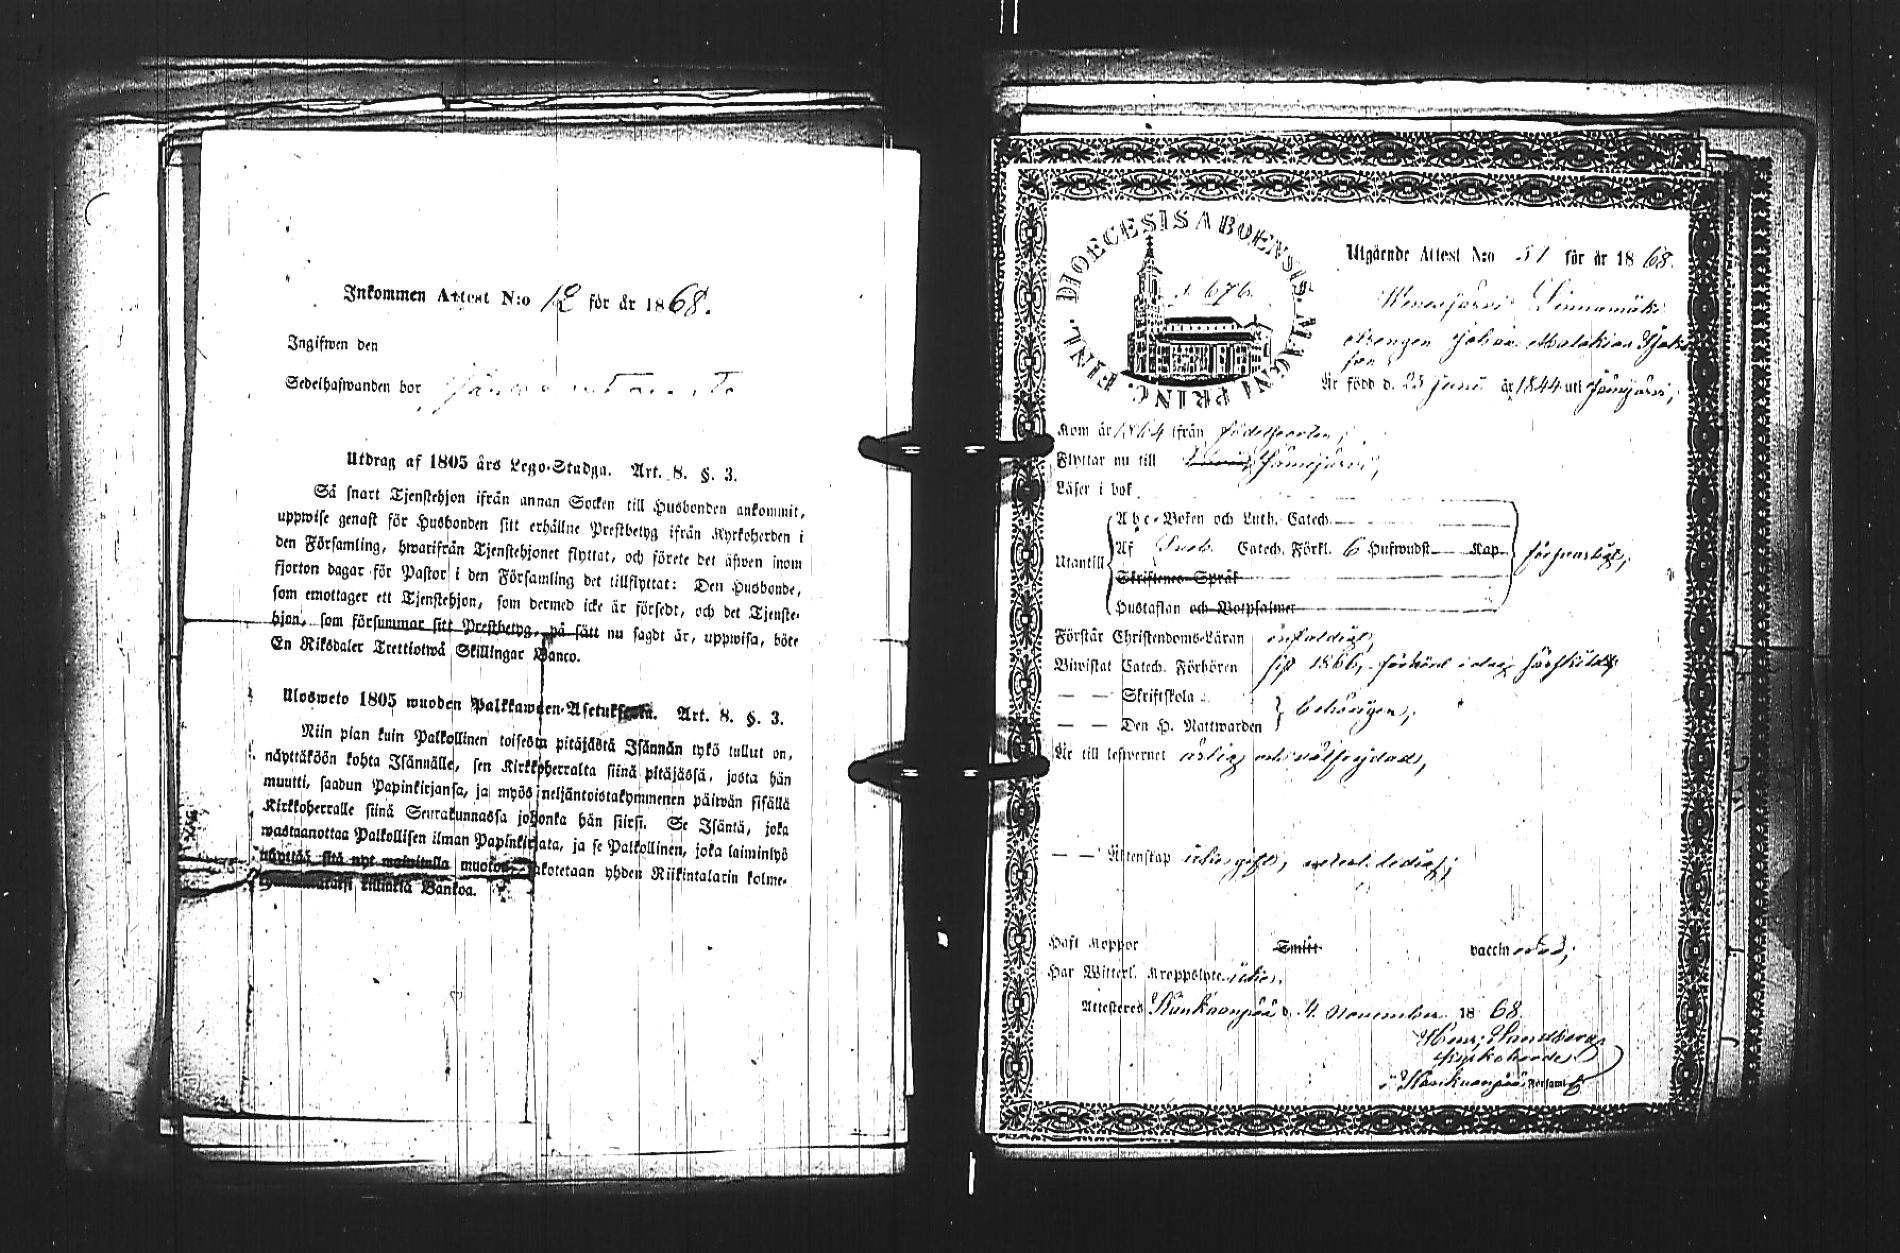 Inkommen Attest N:o 12 för år 1868.
Ingifwen den
Sedelhafwanden bor
Utdrag af 1805 års Lego-Stadga. Art. 8. §. 3.
Så snart Tjenstehjon ifrån annan Socken till Husbonden ankommit,
uppwise genast för Husbonden sitt erhållne Prestbetyg ifrån Kyrkoherden i
den Församling, hwarifrån Tjenstehjonet flyttat, och förete det äfwen inom
fjorton dagar för Pastor i den Församling det tillflyttat: Den Husbonde,
som emottager ett Tjenstehjon, som dermed icke är försedt, och det Tjenste-
hjon, som försummar sitt Prestbetyg, på sätt nu sagdt är, uppwisa, böte
En Riksdaler Trettiotwå Skillingar Banco.
Ulosweto 1805 wuoden Palkkawäen-Asetuksesta. Art. 8. §. 3.
Niin pian kuin Palkollinen toisesta pitäjästä Isännän tykö tullut on,
näyttäköön kohta Isännälle, sen Kirkkoherralta siinä pitäjässä, josta hän
muutti, saadun Papinkirjansa, ja myös neljäntoistakymmenen päiwän sisällä
Kirkkoherralle siinä Seurakunnassa johonka hän siirsi. Se Isäntä, joka
wastaanottaa Palkollisen ilman Papinkirjata, ja se Palkollinen, joka laiminlyö
näyttää sitä nyt mainitulla muotoa, sakotetaan yhden Riikintalarin kolme-
killinkiä Bankoa.
DIOECESIS ABOENSIS. MAGNI PRINC. FINL.
S. 676.
Utgående Attest N:o 51 för år 1868.
Wenesjärvi Linnamäki
drengen Johan Malakias
son
Är född d. 25 Juni år 1844 uti Jämijärvi,
Kom år 1864 ifrån födelseorten,
Flyttar nu till Jämijärvi,
Läser i bok
Utantill
Abc-Boken och Luth. Catech.
Af Sveb. Catech. Förkl. 6 Hufwudst. Kap.
Skriftenes Språk
Hustaflan och Botpsalmer
försvarligt,
Förstår Christendoms-Läran enfaldigt,
Biwistat Catech. Förhören sist 1866, förhörd i dag särskildt
— — Skriftskola
— — Den H. Nattwarden
behörigen,
Är till lefwernet ärlig och välfrejdad,
— — Äktenskap
Haft Koppor Smitt vaccinerad,
Har Witterl. Kroppslyte icke.
Attesteras Kankaanpää d. 4 November 1868.
Henr. Sandberg
Kyrkoherde
i Kankaanpää Församl.